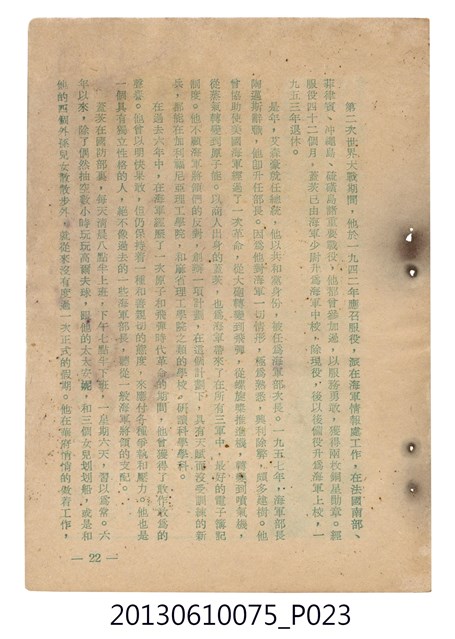 第二次世界大戰期間，他於一九四二年應召服役，派在海軍情報處工作，在法國南部、
菲律賓、沖繩島、硫磺島諸重要戰役，他都曾參加過，以服務勇敢，獲得兩枚銅星勛章。經
服役四十二個月，蓋茨已由海軍少尉升為海軍中校，除現役，後以後備役升為海軍上校，一
九五三年退休。
是年，艾森豪就任總統，他以共和黨身份，被任為海軍部次長。一九五七年，海軍部長
湯邁斯辭職，他卽升任部長。因為他對海軍一切情形，極為熟悉，興利除弊，頗多建樹。他
曾協助使美國海軍經過了一次革命，從大砲轉變到飛彈，從螺旋槳推進機，轉變到噴氣機，
從蒸氣轉變到原子能。以商人出身的蓋茨，也為海軍帶來了在所有三軍中，最好的電子簿記
制度。他不顧海軍將領們的反對，創辦一項計劃，在這個計劃下，具有天賦而沒受訓練的新
兵，都能在加利福尼亞理工學院，和麻省理工學院之類的學校，研讀科學學科。
在過去六年中，在海軍經歷了一次原子和飛彈時代革命的期間，他曾獲得了敢作敢為的
聲譽。他曾以明快果敢，但仍保持着一種和善親切的態度，來應付各種爭執和壓力。他也是
一個具有獨立性格的人，絕不像過去的一些海軍部長，聽從一般海軍將領的支配。
蓋茨在國防部裏，每天清晨八點半上班，下午七點半下班，一星期六天，習以為常。六
年以來，除了偶然抽空數小時玩玩高爾夫球，跟他的太太安妮，和三個女兒划划船，或是和
他的四個外孫兒女散散步外，就從來沒有度過一次正式的假期。他在華府悄悄的做着工作，
— 22 —
20130610075_P023